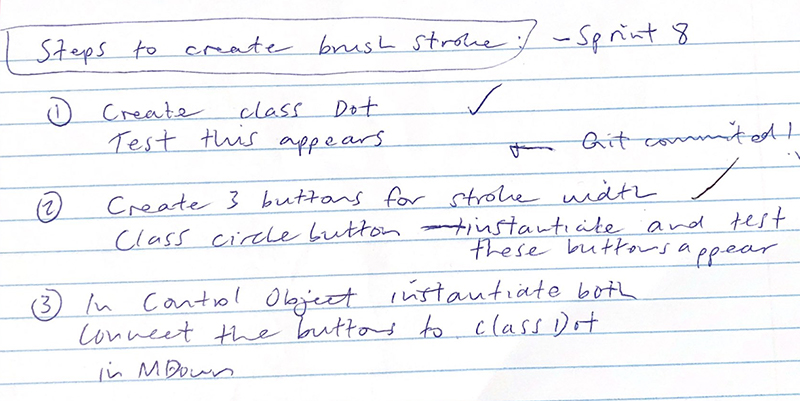 Steps to create brush stroke: - Sprint 8
① Create class Dot ✓
Test this appears
← Git commited!
② Create 3 buttons for stroke width ✓
Class circle button → instantiate and test
these buttons appear
③ In Control Object instantiate both
Connect the buttons to class Dot
in MDown